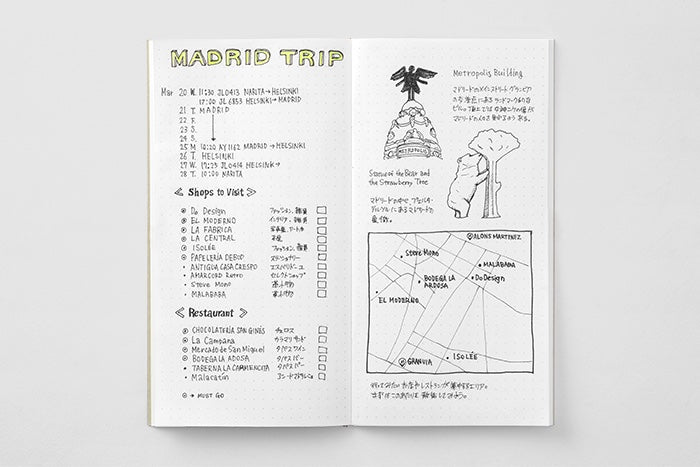 MADRID TRIP
Mar 20 W. 11:30 JL0413 NARITA→HELSINKI
17:00 JL6853 HELSINKI→MADRID
21 T. MADRID
22 F.
23 S.
24 S.
25 M 10:20 AY1162 MADRID→HELSINKI
26 T HELSINKI
27 W. 17:23 JL0414 HELSINKI→
28 T 10:00 NARITA
≪ Shops to Visit ≫
Do Design ファッション、雑貨
EL MODERNO インテリア、雑貨
LA FABRICA
LA CENTRAL
ISOLÉE ファッション、雑貨
PAPELERÍA DEBOD ステーショナリー
ANTIGUA CASA CRESPO エスパドリーユ
AMARCORD Retro セレクトショップ
Steve Mono 革小物
MALABABA 革小物
≪ Restaurant ≫
CHOCOLATERÍA SAN GINÉS チュロス
La Campana カラマリサンド
Mercado de San Miguel タパスワイン
BODEGA LA ADOSA タパスバー
TABERNA LA CARMENCITA タパスバー
Malacatín
→ MUST GO
Metropolis Building
マドリードのメインストリート グランビア
METROPOLIS
Statue of the Bear and
the Strawberry Tree
マドリードの中心、プエルタ・
デル・ソルにあるマドリードの
ALONS MARTINEZ
Steve Mono
MALABABA
BODEGA LA
ARDOSA
Do Design
EL MODERNO
GRANVIA
ISOLÉE
行ってみたいお店やレストランが集中するエリア。
まずはこのあたりを